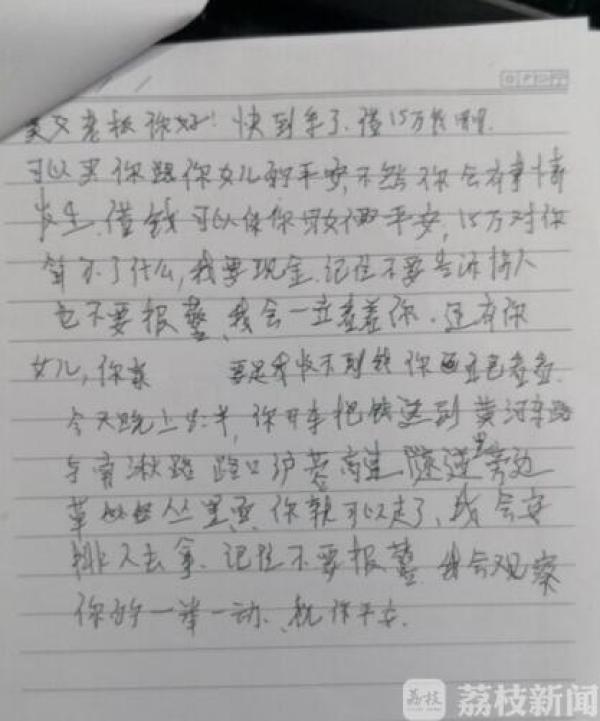 老板你好!快到年了,借15万
可以买你跟你女儿的平安,不然你会有事情
发生.借钱可以保你母女俩平安,15万对你
算不了什么,我要现金.记住不要告诉
也不要报警,我会一直看着你.还有你
女儿,你家 要是我收不到钱你
今天晚上 半,你开车把钱送到黄河
与 路 路口沪 高速隧道 旁边
草 丛里面.你就可以走了,我会安
排人去拿.记住不要报警 我会观察
你的一举一动.祝你平安.
荔枝
荔枝新闻